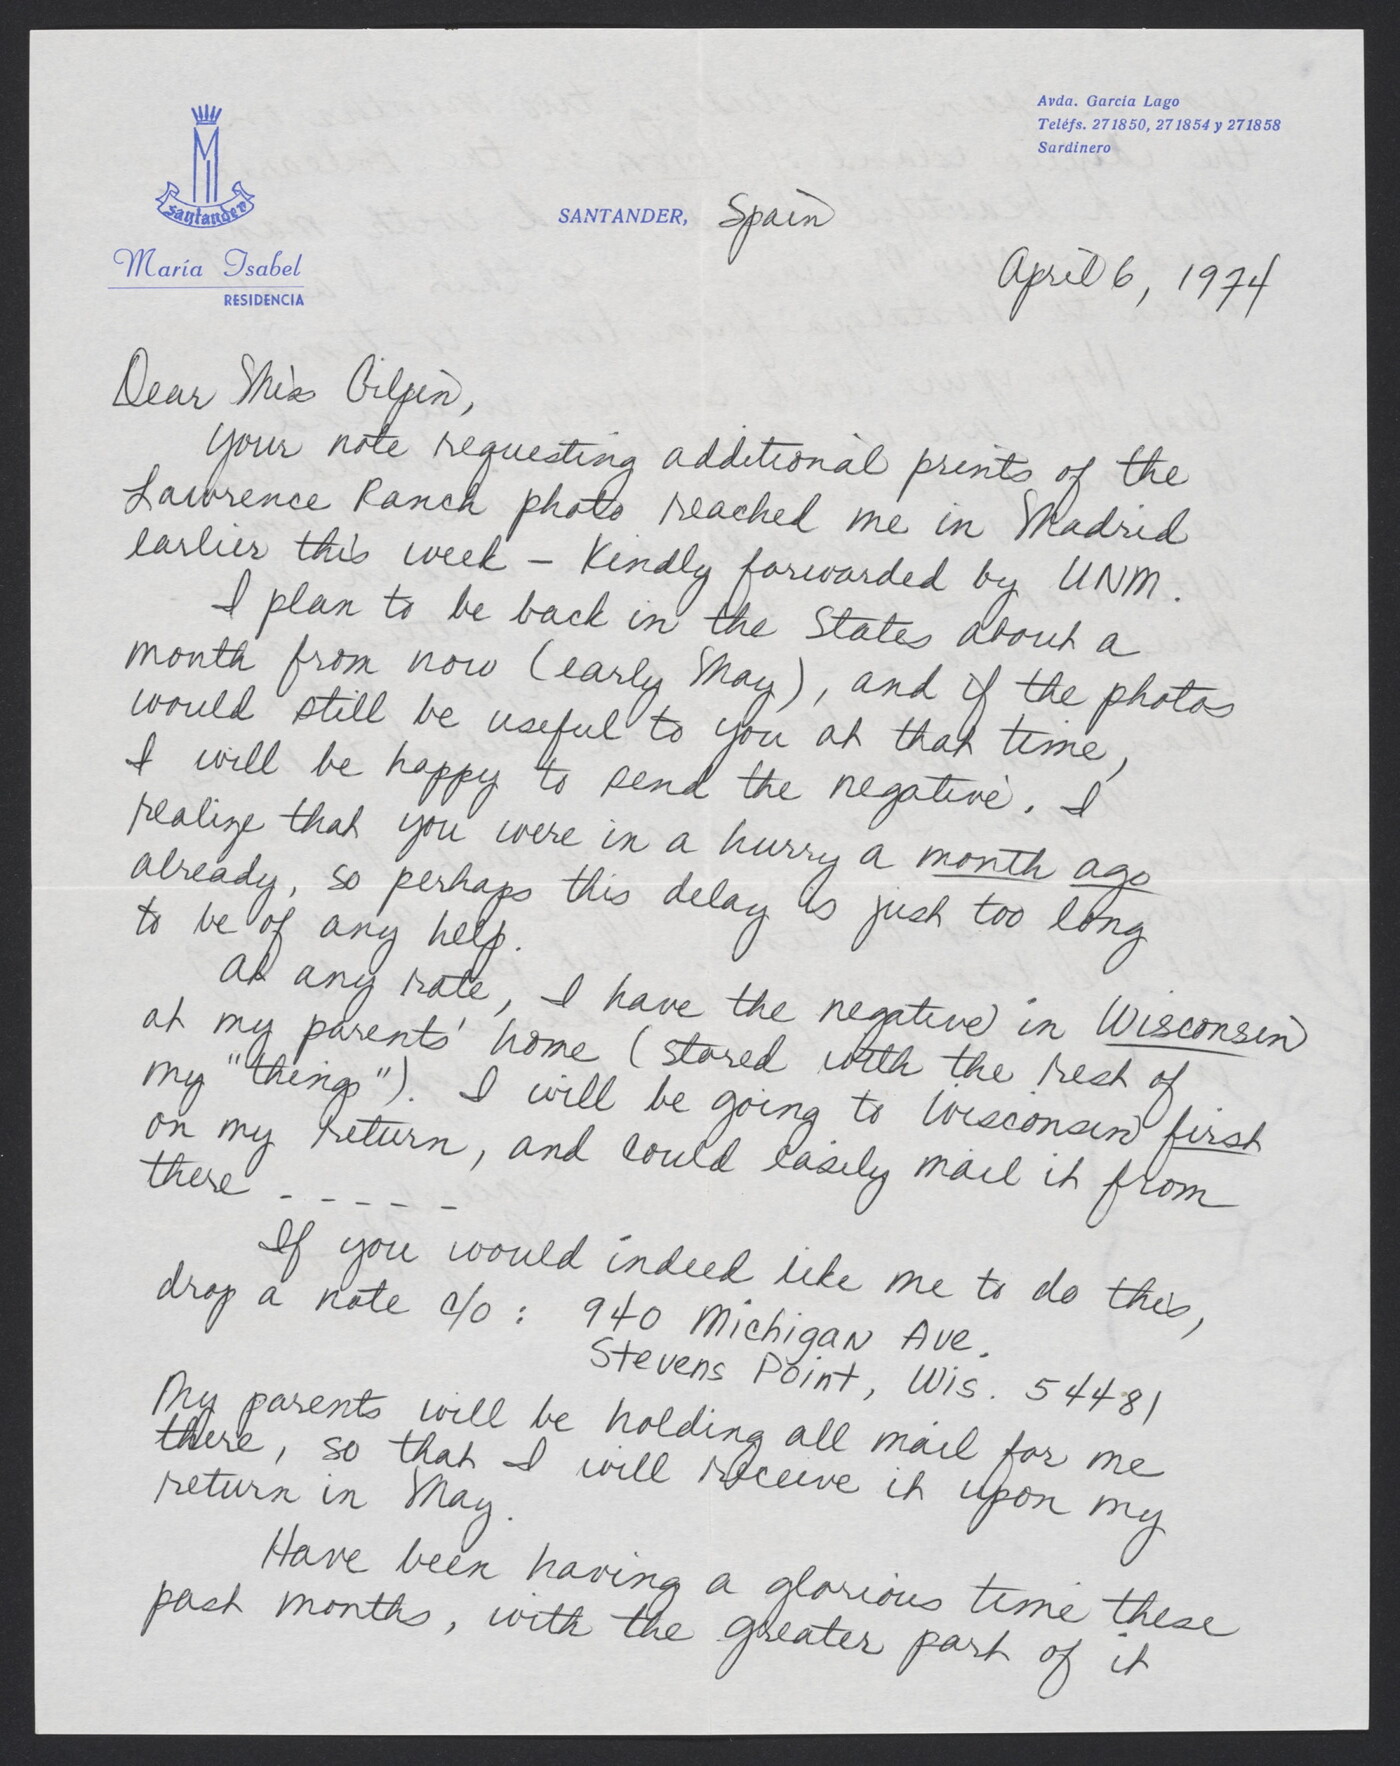 Avda. García Lago
Teléfs. 271850, 271854 y 271858
Sardinero
M
santander
María Isabel
RESIDENCIA
SANTANDER, Spain
April 6, 1974
Dear Miss Gilpin,
Your note requesting additional prints of the
Lawrence Ranch photo reached me in Madrid
earlier this week – kindly forwarded by UNM.
I plan to be back in the States about a
month from now (early May), and if the photos
would still be useful to you at that time,
I will be happy to send the negative. I
realize that you were in a hurry a month ago
already, so perhaps this delay is just too long
to be of any help.
At any rate, I have the negative in Wisconsin
at my parents' home (stored with the rest of
my "things"). I will be going to Wisconsin first
on my return, and could easily mail it from
there - - - - -
If you would indeed like me to do this,
drop a note c/o: 940 Michigan Ave.
Stevens Point, Wis. 54481
My parents will be holding all mail for me
there, so that I will receive it upon my
return in May.
Have been having a glorious time these
past months, with the greater part of it